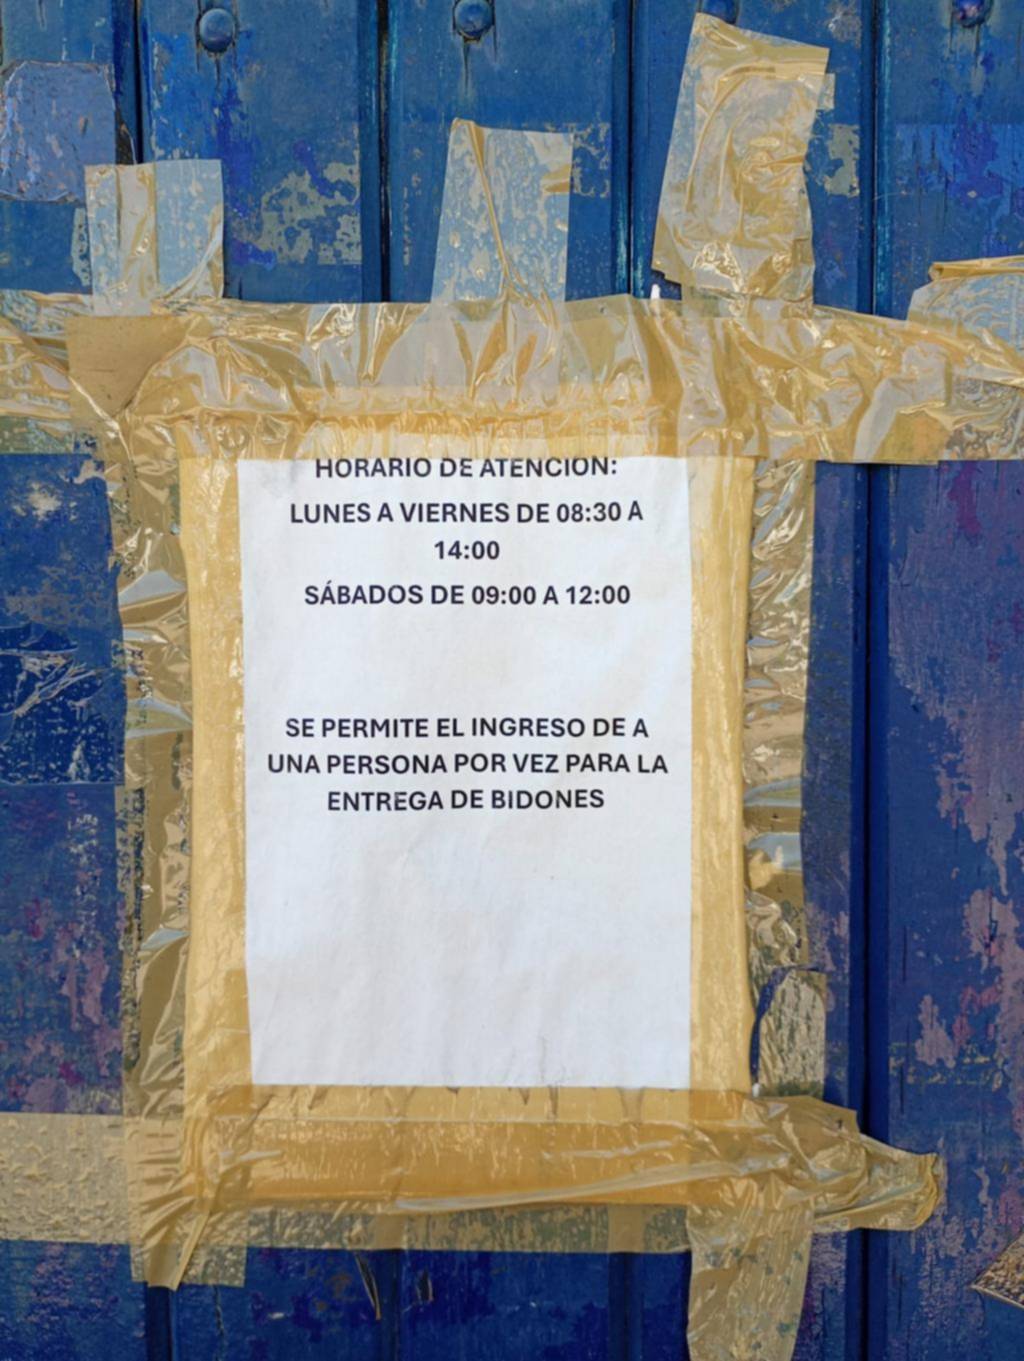 HORARIO DE ATENCION:
LUNES A VIERNES DE 08:30 A
14:00
SÁBADOS DE 09:00 A 12:00
SE PERMITE EL INGRESO DE A
UNA PERSONA POR VEZ PARA LA
ENTREGA DE BIDONES